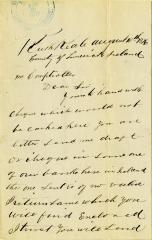 Rathkeale August 10th
County of Limerick Ireland
Mr
Dear Sir
Yours to hand with
cheque which would not
be cashed here you are
better send me draft
or cheque in some one
of our banks here in Ireland
the one sent is of no
Return same which you
will find Enclosed
I trust you will send